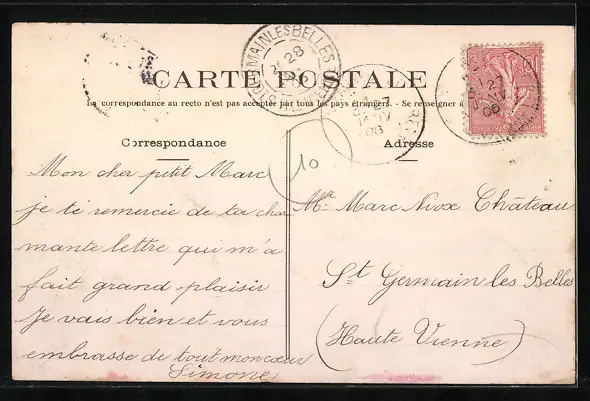 CARTE POSTALE
La correspondance au recto n'est pas acceptée par tous les pays étrangers. - Se renseigner à
Correspondance
Mon cher petit Marc
je te remercie de ta char
mante lettre qui m'a
fait grand plaisir
Je vais bien et vous
embrasse de tout mon cœur
Simone
10
Adresse
Mr Marc Niox Château
St Germain les Belles
(Haute Vienne)
28
27
06
27
06